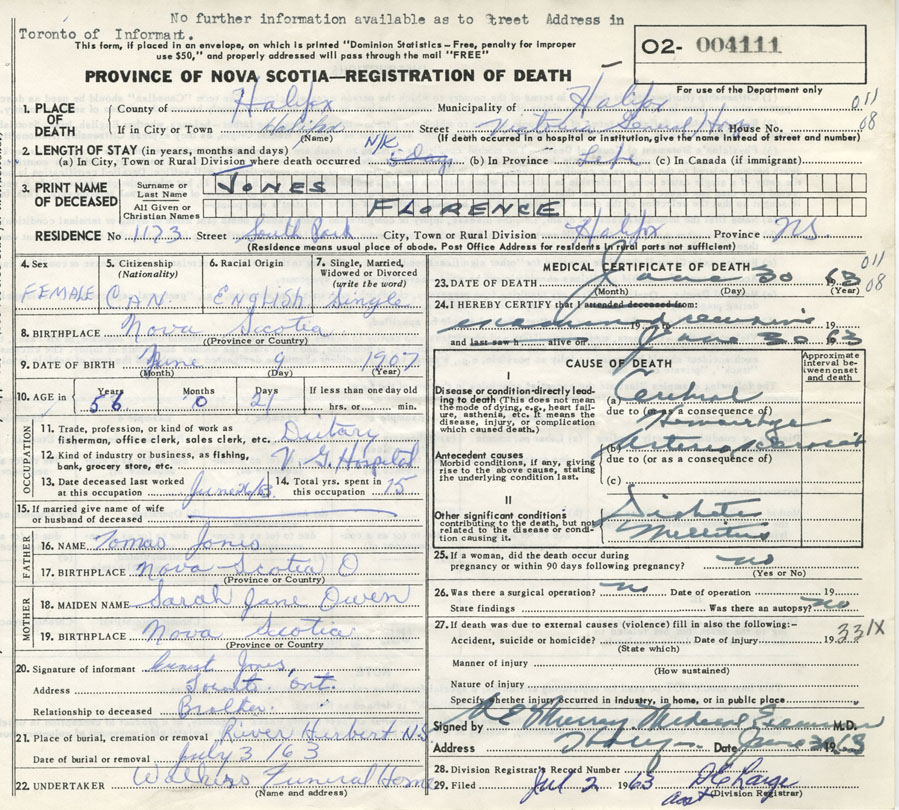 No further information available as to Street Address in
Toronto of Informant.
This form, if placed in an envelope, on which is printed "Dominion Statistics – Free, penalty for improper
use $50," and properly addressed will pass through the mail "FREE"
02- 004111
For use of the Department only
PROVINCE OF NOVA SCOTIA—REGISTRATION OF DEATH
1. PLACE OF DEATH
County of Halifax Municipality of Halifax 011
If in City or Town Halifax Street Victoria General Hosp House No. 08
(Name) (If death occurred in a hospital or institution, give the name instead of street and number)
2. LENGTH OF STAY (in years, months and days) N/K
(a) In City, Town or Rural Division where death occurred (b) In Province Life (c) In Canada (if immigrant)
3. PRINT NAME OF DECEASED
Surname or Last Name JONES
All Given or Christian Names FLORENCE
RESIDENCE No 1173 Street South Park City, Town or Rural Division Halifax Province NS.
(Residence means usual place of abode. Post Office Address for residents in rural parts not sufficient)
4. Sex FEMALE
5. Citizenship (Nationality) CAN
6. Racial Origin ENGLISH
7. Single, Married, Widowed or Divorced (write the word) Single
8. BIRTHPLACE Nova Scotia
(Province or Country)
9. DATE OF BIRTH June 9 1907
(Month) (Day) (Year)
10. AGE in Years 56 Months 0 Days 21 If less than one day old
hrs. or min.
OCCUPATION
11. Trade, profession, or kind of work as
fisherman, office clerk, sales clerk, etc. Dietary
12. Kind of industry or business, as fishing,
bank, grocery store, etc. V. G. Hospital
13. Date deceased last worked
at this occupation June /63
14. Total yrs. spent in
this occupation 15
15. If married give name of wife
or husband of deceased
FATHER
16. NAME Tomas Jones
17. BIRTHPLACE Nova Scotia
(Province or Country)
MOTHER
18. MAIDEN NAME Sarah Jane Owen
19. BIRTHPLACE Nova Scotia
(Province or Country)
20. Signature of informant Ernest Jones
Address Toronto. Ont.
Relationship to deceased Brother
21. Place of burial, cremation or removal River Herbert N.S
Date of burial or removal July 3/63
22. UNDERTAKER Walkers Funeral Home
(Name and address)
MEDICAL CERTIFICATE OF DEATH
23. DATE OF DEATH June 30 1963 011
(Month) (Day) (Year) 08
24. I HEREBY CERTIFY that I attended deceased from:
examined remains 19 19
and last saw h alive on June 30 1963
CAUSE OF DEATH
Approximate interval between onset and death
I
Disease or condition directly leading to death (This does not mean the mode of dying, e.g., heart failure, asthenia, etc. It means the disease, injury, or complication which caused death.)
(a) Cerebral
due to (or as a consequence of)
Hemorrhage
Antecedent causes
Morbid conditions, if any, giving rise to the above cause, stating the underlying condition last.
(b) Arteriosclerosis
due to (or as a consequence of)
(c)
II
Other significant conditions
contributing to the death, but not related to the disease or condition causing it.
Diabetes
Mellitus
25. If a woman, did the death occur during
pregnancy or within 90 days following pregnancy? no
(Yes or No)
26. Was there a surgical operation? no Date of operation 19
State findings Was there an autopsy? no
27. If death was due to external causes (violence) fill in also the following:–
Accident, suicide or homicide? Date of injury 19 331X
(State which)
Manner of injury
(How sustained)
Nature of injury
Specify whether injury occurred in industry, in home, or in public place
Signed by Murray Medical Examiner M.D.
Address Date June 30 1963
28. Division Registrar's Record Number
29. Filed Jul 2 1963
(Division Registrar)